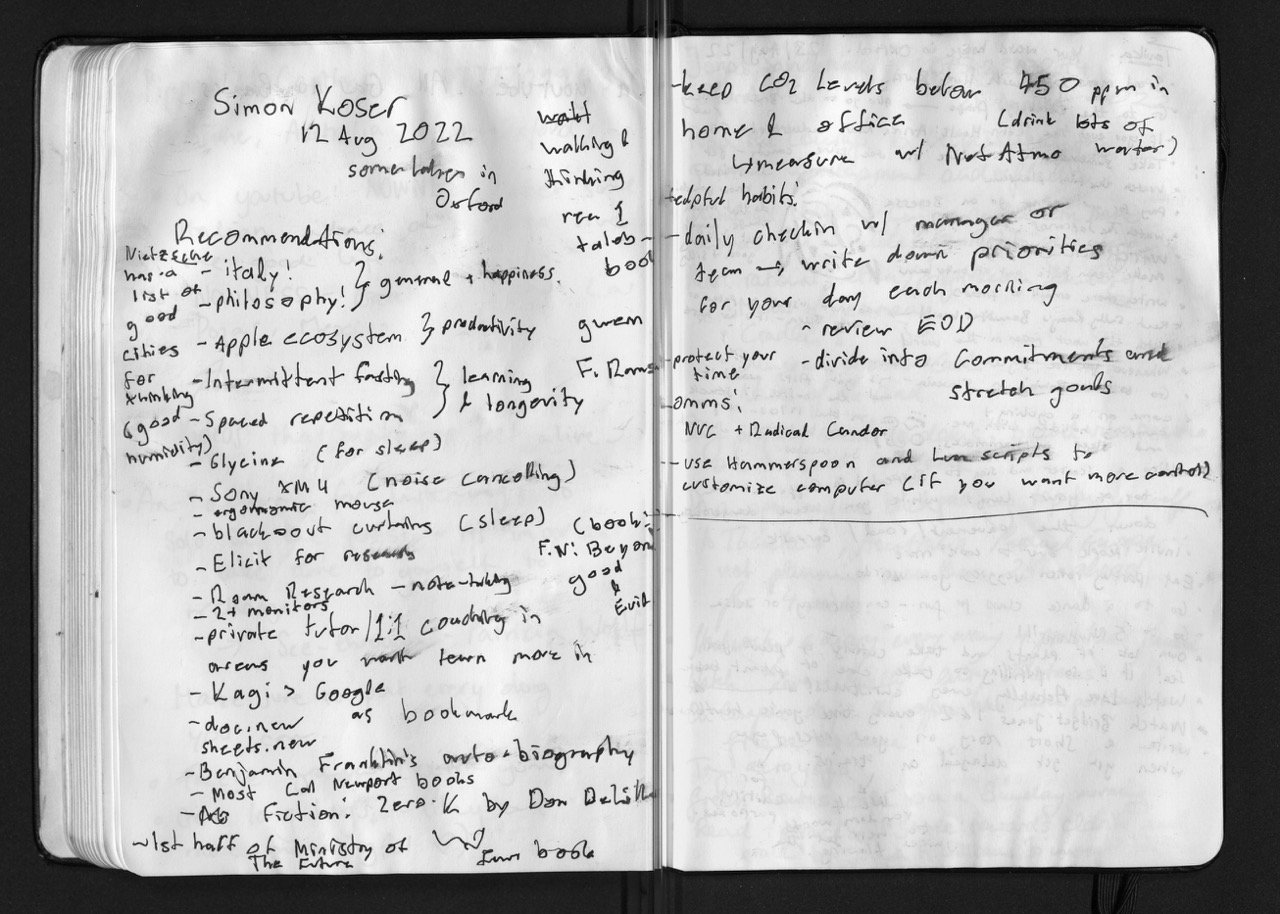 Simon Koser
12 Aug 2022
somewhere in
Oxford
walking &
thinking
read 1
taleb
book
Recommendations:
Nietzsche
has a
list of
good
cities
for
thinking
(good
humidity)
- italy!
- philosophy! } general + happiness
- Apple ecosystem } productivity
gwern
- Intermittent fasting } learning
- Spaced repetition & longevity
F. Rams
- Glycine (for sleep)
- Sony XM4 (noise cancelling)
- ergonomic mouse
- blackout curtains (sleep)
- Elicit for research
(book:
F.N: Beyond
good
&
Evil
- Roam Research - note-taking
- 2+ monitors
- private tutor/1:1 coaching in
areas you want learn more in
- Kagi > Google
- doc.new as bookmark
sheets.new
- Benjamin Franklin's auto-biography
- Most Cal Newport books
- Fiction: Zero K by Don DeLill
- 1st half of Ministry of
The Future
fun book
- keep CO2 Levels below 450 ppm in
home & office (drink lots of
water)
↳ measure w/ NetAtmo
elpful habits:
- daily checkin w/ manager or
team → write down priorities
for your day each morning
- review EOD
- protect your
time
- divide into Commitments and
stretch goals
omms:
NVC + Radical Candor
- use Hammerspoon and Lua scripts to
customize computer (if you want more control)